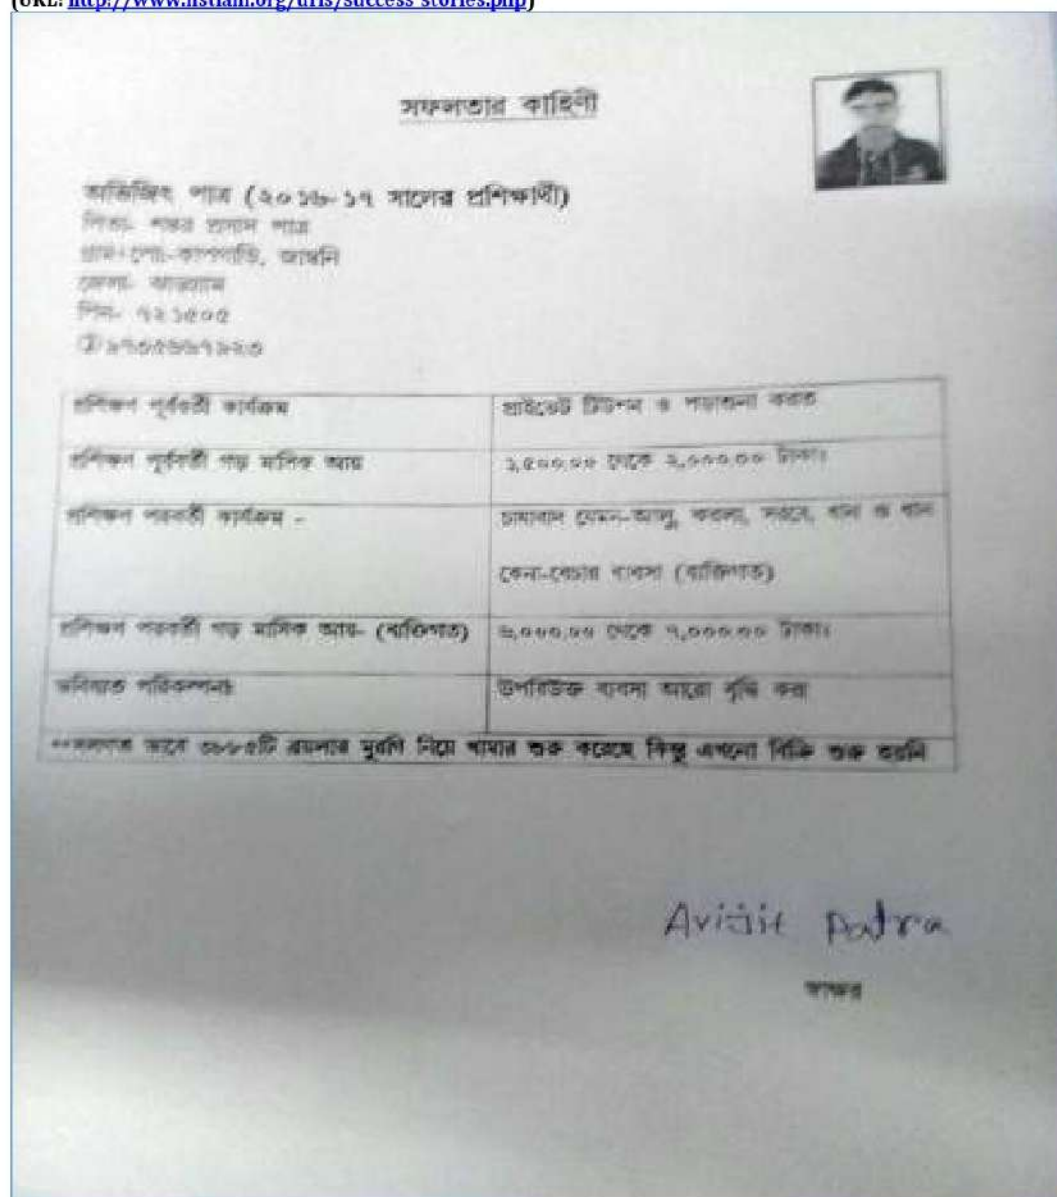 (URL: http://www.nstiam.org/uris/success-stories.php)
সফলতার কাহিনী
অভিজিৎ পাত্র (২০১৬-১৭ সালের প্রশিক্ষার্থী)
পিতা- শঙ্কর প্রসাদ পাত্র
গ্রাম+পো:- জাম্বনি
জেলা- ঝাড়গ্রাম
পিন- ৭২১৫০৫
প্রশিক্ষণ পূর্ববর্তী কার্যক্রম
প্রাইভেট টিউশন ও পড়াশুনা করত
প্রশিক্ষণ পূর্ববর্তী গড় মাসিক আয়
১,৫০০.০০ থেকে ২,০০০.০০ টাকা।
প্রশিক্ষণ পরবর্তী কার্যক্রম -
চাষাবাদ যেমন-আলু, করলা, সরষে, ধান ও ধান
কেনা-বেচার ব্যবসা (ব্যক্তিগত)
প্রশিক্ষণ পরবর্তী গড় মাসিক আয়- (ব্যক্তিগত)
৬,০০০.০০ থেকে ৭,০০০.০০ টাকা।
ভবিষ্যত পরিকল্পনা
উপরিউক্ত ব্যবসা আরো বৃদ্ধি করা
ব্রয়লার মুরগি নিয়ে খামার শুরু করেছে কিন্তু এখনো বিক্রি শুরু হয়নি
Avijit Patra
স্বাক্ষর